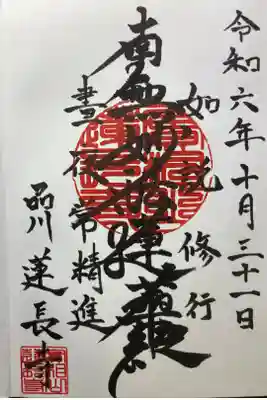 令和六年十月三十一日
如説修行
南無妙法蓮華経
昼夜常精進
品川 蓮長寺